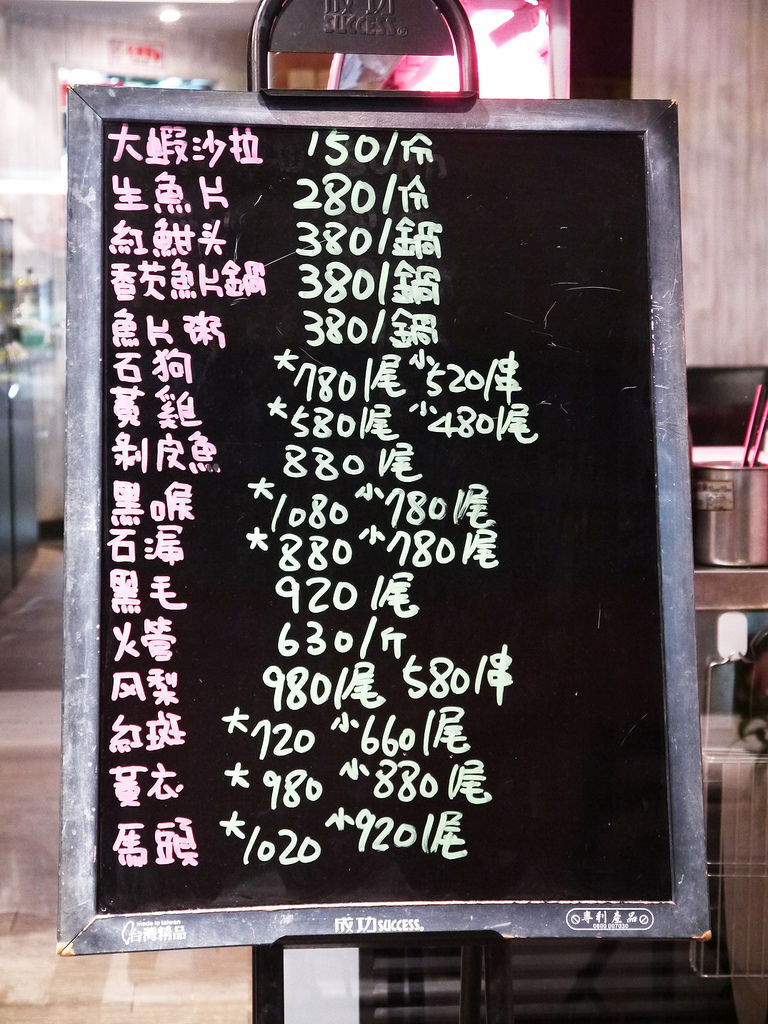 成功
SUCCESS®
大蝦沙拉 150/份
生魚片 280/份
紅魽头 380/鍋
香芡魚片鍋 380/鍋
魚片粥 380/鍋
石狗 大780/尾 小520/串
黃雞 大580/尾 小480/尾
剝皮魚 880尾
黑喉 大1080 小780/尾
石漏 大880 小780/尾
黑毛 920/尾
火管 630/斤
风梨 980/尾 580/串
紅斑 大720 小660/尾
黃衣 大980 小880/尾
馬頭 大1020 小920/尾
made in taiwan
台灣精品
成功SUCCESS®
專利產品
0800 007030